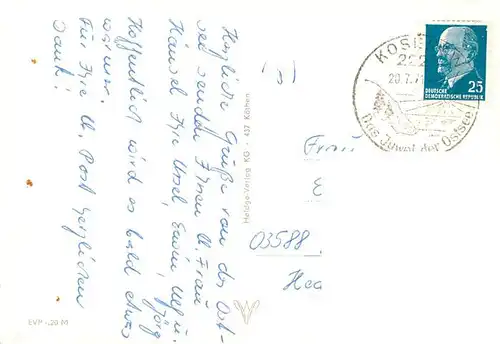 Herzliche Grüße von der Ost-
see senden Ihnen u. Frau
Hänsel Ihre Ursel, Erwin, Uef u.
Jörg
Hoffentlich wird es bald etwas
wärmer.
Für Ihre lb. Post herzlichen
Dank!
EVP -,20 M
Heldge-Verlag KG · 437 Köthen
KOSE
222
20.7.71
Das Juwel der Ostsee
DEUTSCHE
DEMOKRATISCHE REPUBLIK
25
Frau
03588